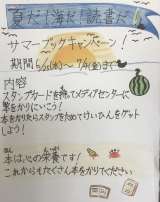 夏だ!海だ!読書だ!
サマーブックキャンペーン!
期間 (水)〜(金)まで
内容
スタンプカードを持ってメディアセンターに
本をかりにいこう!
本をかりたらスタンプをためてけいひんをゲット
しよう!
本は心の栄養です!
これからもたくさん本をかりてください